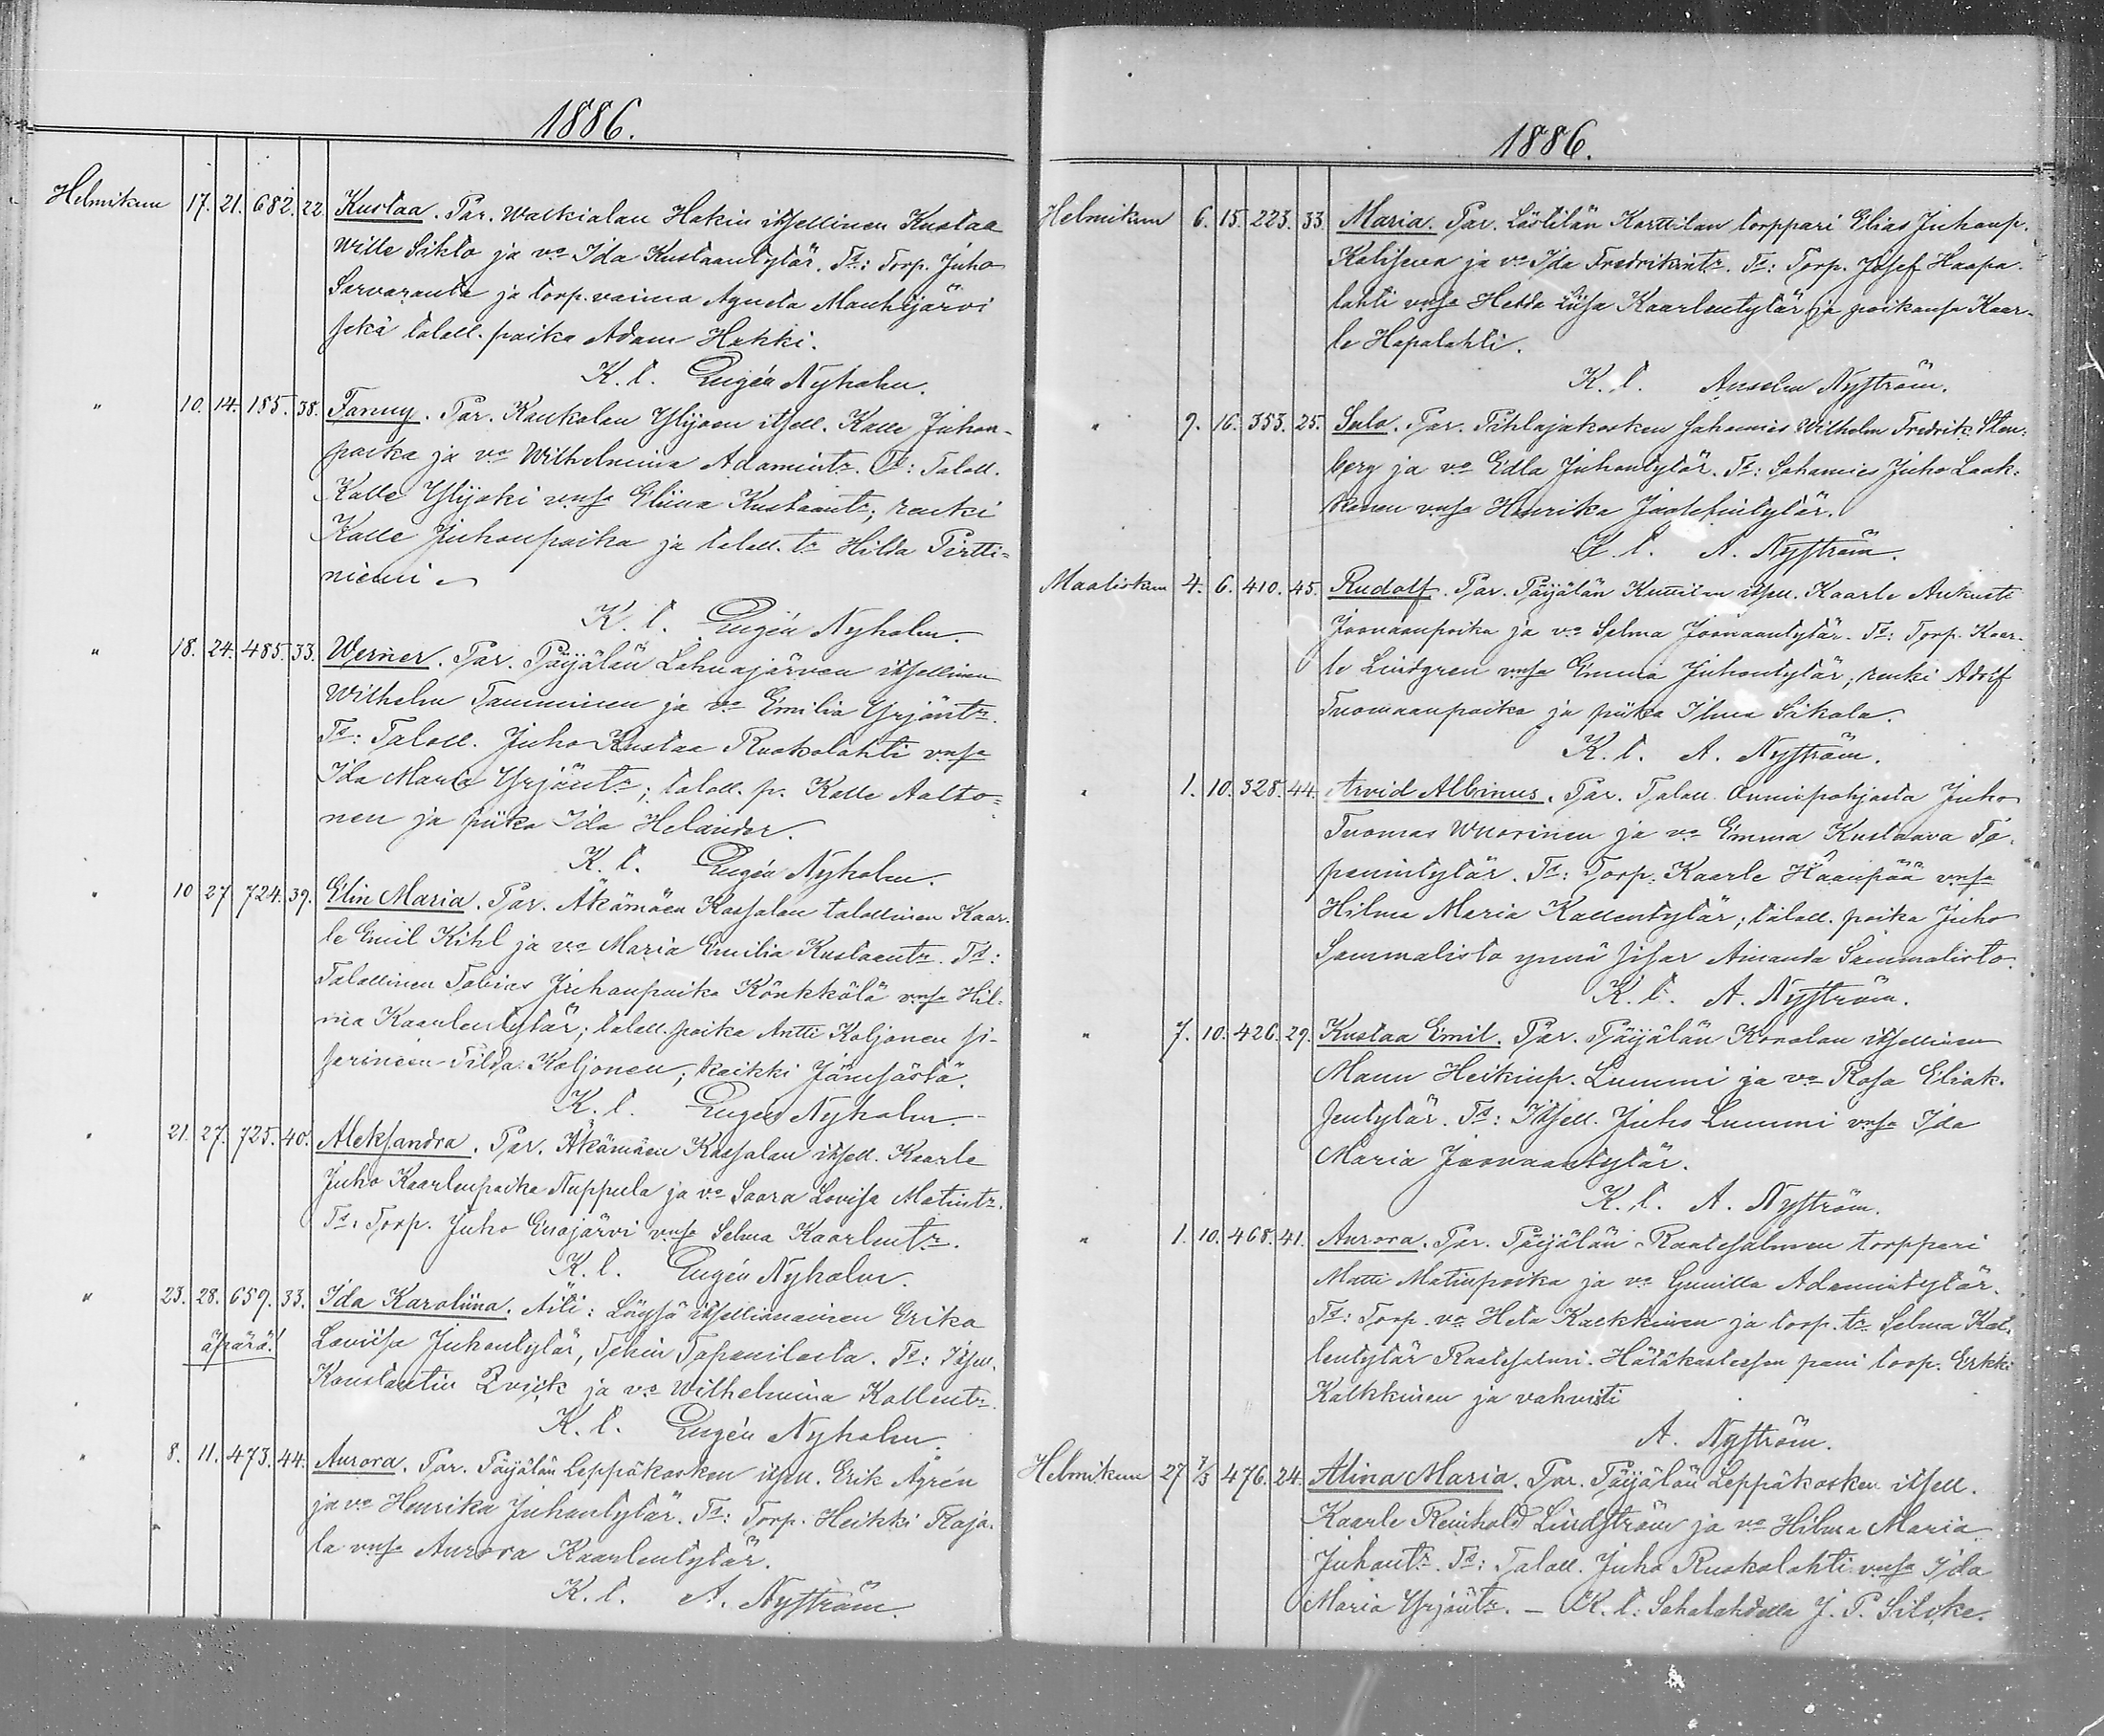 1886.
Helmikuu 17. 21. 682. 22. Kustaa. Par. Walkialan Hakin itsellinen Kustaa
Wille Sikto ja vo Ida Kustaantytär. Td: Torp. Juho
Sarvaranta ja torp. vaimo Agneta Manhijärvi
sekä taloll. poika Adam Hakki.
K. t. Eugén Nyholm.
" 10. 14. 185. 38. Fanny. Par. Kaukolan Ylijoen itsell. Kalle Juhon-
poika ja vo Wilhelmina Adamintr. Td: Taloll.
Kalle Ylijoki vnsa Eliina Kustaantr; renki
Kalle Juhonpoika ja taloll. tr Hilda Pirtti-
niemi.
K. t. Eugén Nyholm.
" 18. 24. 485. 33. Werner. Par. Päijälän Lahnajärven itsellinen
Wilhelm Tamminen ja vo Emilia Yrjöntr.
Td: Taloll. Juho Kustaa Ruokolahti vnsa
Ida Maria Yrjöntr; taloll. p. Kalle Aalto-
nen ja piika Ida Helander.
K. t. Eugén Nyholm.
" 10 27 724. 39. Elin Maria. Par. Äkämäen Kassalan talollinen Kaar-
le Emil Kihl ja vo Maria Emilia Kustaantr. Td:
Talollinen Tobias Juhanpoika Könkkölä vnsa Hil-
ma Kaarlentytär; taloll. poika Antti Koljonen si-
sarineen Tilda Koljonen; kaikki Jämsästä.
K. t. Eugén Nyholm.
" 21. 27. 725. 40. Aleksandra. Par. Äkämäen Kassalan itsell. Kaarle
Juho Kaarlenpoika Nuppula ja vo Saara Lovisa Matintr.
Td: Torp. Juho Enojärvi vnsa Selma Kaarlentr.
K. t. Eugén Nyholm.
" 23. 28. 659. 33. Ida Karoliina. Äiti: Löysä itsellisnainen Erika
äpärä! Loviisa Juhontytär, Tapanilasta. Td: Itsell.
Konstantin Qvick ja vo Wilhelmina Kallentr.
K. t. Eugén Nyholm.
" 8. 11. 473. 44. Aurora. Par. Päijälän Leppäkosken itsell. Erik Ågrén
ja vo Henrika Juhontytär. Td: Torp. Heikki Raja-
la vnsa Aurora Kaarlentytär.
K. t. A. Nyström.
1886.
Helmikuu 6. 15. 223. 33. Maria. Par. Karttilan torppari Elias Juhanp.
ja vo Ida Fredrikintr. Td: Torp. Josef Haapa-
lahti vnsa Hedda Liisa Kaarlentytär ja poikansa Kaar-
le Hapalahti.
K. t. Anselm Nyström.
" 9. 16. 353. 25. Sulo. Par. Pihlajakosken sahamies Wilhelm Fredrik Sten-
berg ja vo Edla Juhontytär. Td: Sahamies Juho Laak-
konen vnsa Henrika Joosefintytär.
K. t. A. Nyström.
Maaliskuu 4. 6. 410. 45. Rudolf. Par. Päijälän itsell. Kaarle Aukusti
Joonaanpoika ja vo Selma Joonaantytär. Td: Torp. Kaar-
le Lindgren vnsa Emma Juhontytär; renki Adolf
Tuomaanpoika ja piika Ilma Sikala.
K. t. A. Nyström.
" 1. 10. 328. 44. Arvid Albinus. Par. Taloll. Onnispohjasta Juho
Tuomas Wuorinen ja vo Emma Kustaava Ta-
panintytär. Td: Torp. Kaarle Häänpää vnsa
Hilma Maria Kallentytär; taloll. poika Juho
Sammalisto ynnä sisar Amanda Sammalisto.
K. t. A. Nyström.
" 7. 10. 426. 29. Kustaa Emil. Par. Päijälän itsellinen
Manu Heikinp. Lummi ja vo Rosa Eliak-
sentytär. Td: Itsell. Juho Lummi vnsa Ida
Maria Joonaantytär.
K. t. A. Nyström.
" 1. 10. 468. 41. Aurora. Par. Päijälän Raatesalmen torppari
Matti Matinpoika ja vo Gunilla Adamintytär.
Td: Torp. vo Heta Kaekkinen ja torp. tr. Selma Kal-
lentytär Raatesalmi. Hätäkasteessen pani torp. Erkki
Kalkkinen ja vahvisti
A. Nyström.
Helmikuu 27 7/3 476. 24. Alina Maria. Par. Päijälän Leppäkosken itsell.
Kaarle Reinhold Lindström ja vo Hilma Maria
Juhontr. Td: Taloll. Juho Ruokolahti vnsa Ida
Maria Yrjöntr. — K. t: Sahalahdella J. P. Silvke.